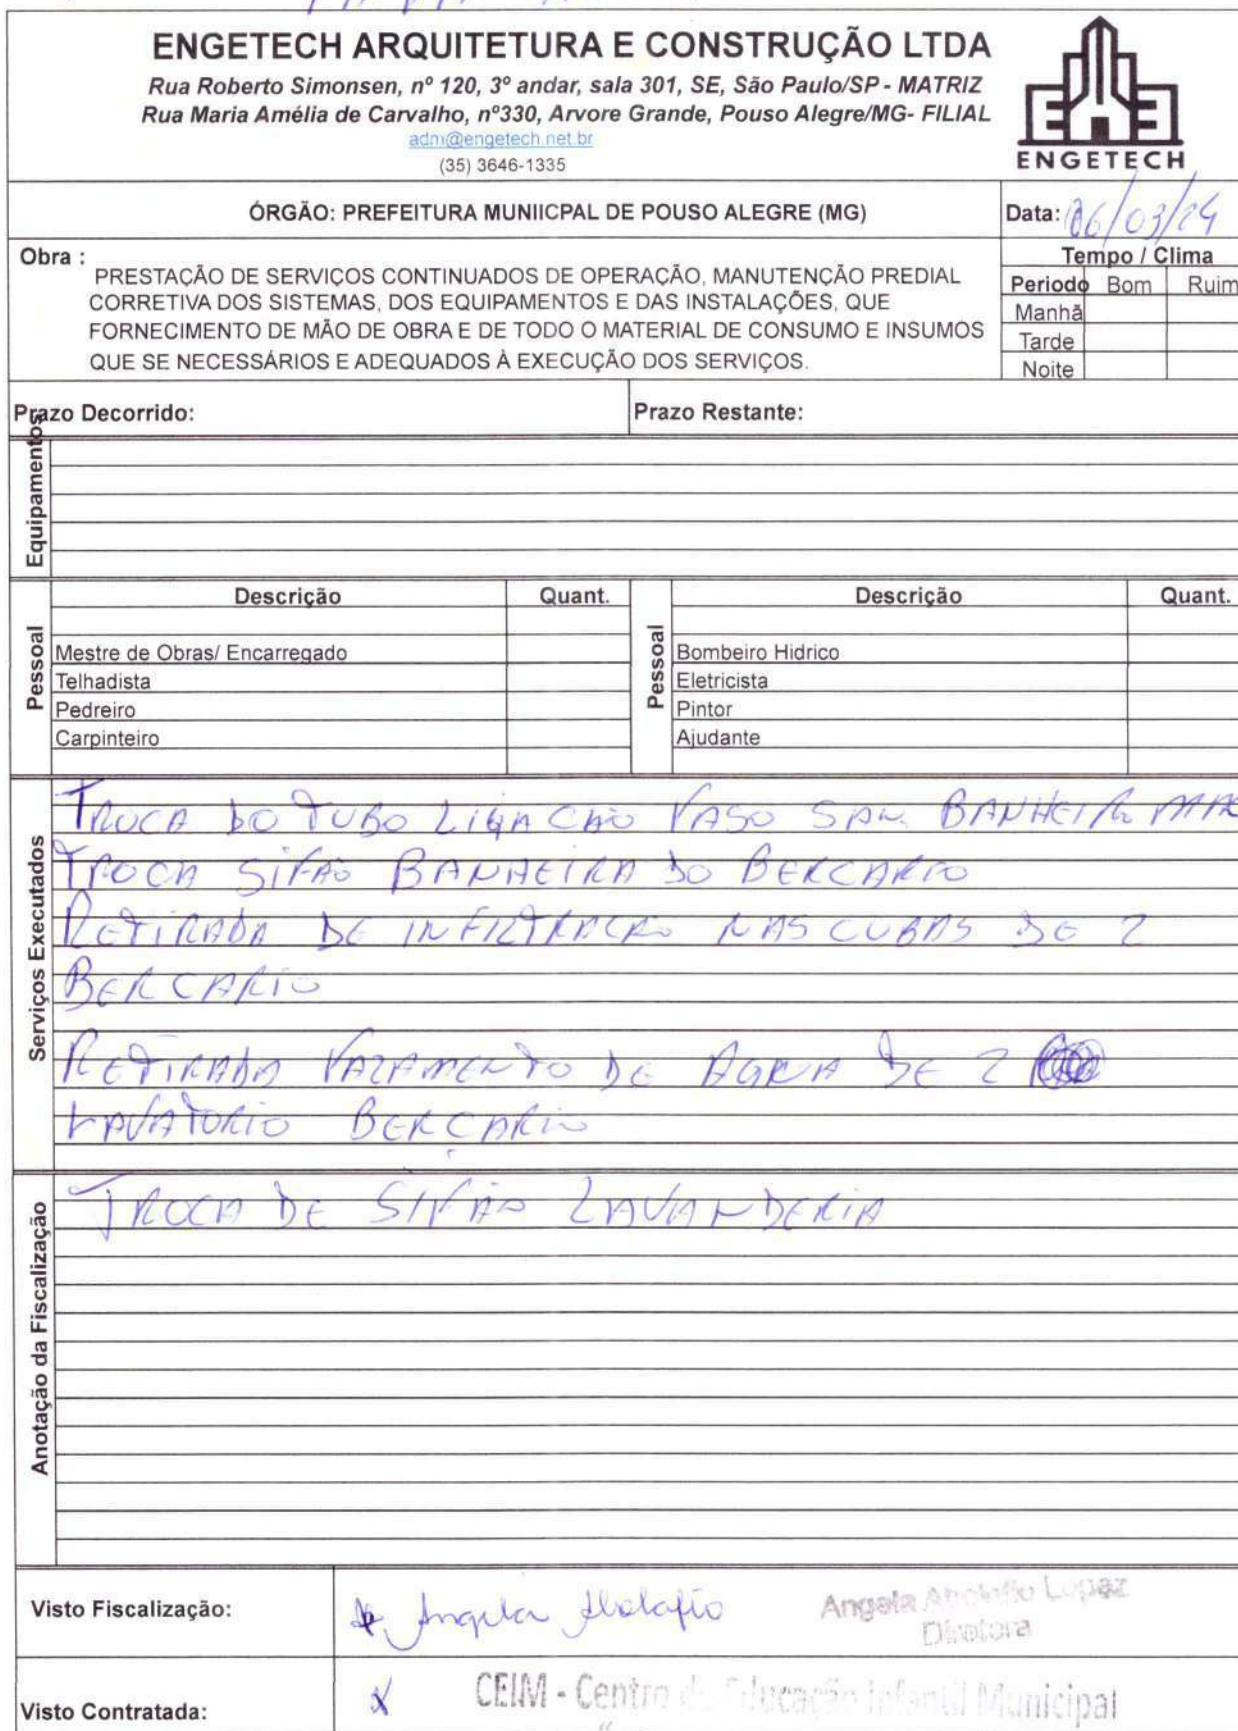 ENGETECH ARQUITETURA E CONSTRUÇÃO LTDA
Rua Roberto Simonsen, nº 120, 3º andar, sala 301, SE, São Paulo/SP - MATRIZ
Rua Maria Amélia de Carvalho, nº330, Arvore Grande, Pouso Alegre/MG- FILIAL
adm@engetech.net.br
(35) 3646-1335
ENGETECH
ÓRGÃO: PREFEITURA MUNIICPAL DE POUSO ALEGRE (MG)
Data: 06/03/24
Obra :
PRESTAÇÃO DE SERVIÇOS CONTINUADOS DE OPERAÇÃO, MANUTENÇÃO PREDIAL
CORRETIVA DOS SISTEMAS, DOS EQUIPAMENTOS E DAS INSTALAÇÕES, QUE
FORNECIMENTO DE MÃO DE OBRA E DE TODO O MATERIAL DE CONSUMO E INSUMOS
QUE SE NECESSÁRIOS E ADEQUADOS À EXECUÇÃO DOS SERVIÇOS.
Tempo / Clima
Periodo Bom Ruim
Manhã
Tarde
Noite
Prazo Decorrido: Prazo Restante:
Equipamentos
Pessoal
Descrição Quant.
Mestre de Obras/ Encarregado
Telhadista
Pedreiro
Carpinteiro
Pessoal
Descrição Quant.
Bombeiro Hidrico
Eletricista
Pintor
Ajudante
Serviços Executados
TROCA DO TUBO LIGACAO VASO SAN. BANHEIRO
TROCA SIFÃO BANHEIRA DO BERCARIO
RETIRADA DE INFILTRACAO NAS CUBAS DE 2
BERCARIO
RETIRADA VAZAMENTO DE AGUA DE 2
LAVATORIO BERCARIO
Anotação da Fiscalização
TROCA DE SIFÃO LAVANDERIA
Visto Fiscalização:
Angela Abolafio
Angela Abolafio Lopaz
Diretora
Visto Contratada:
X
CEIM - Centro de Educação Infantil Municipal